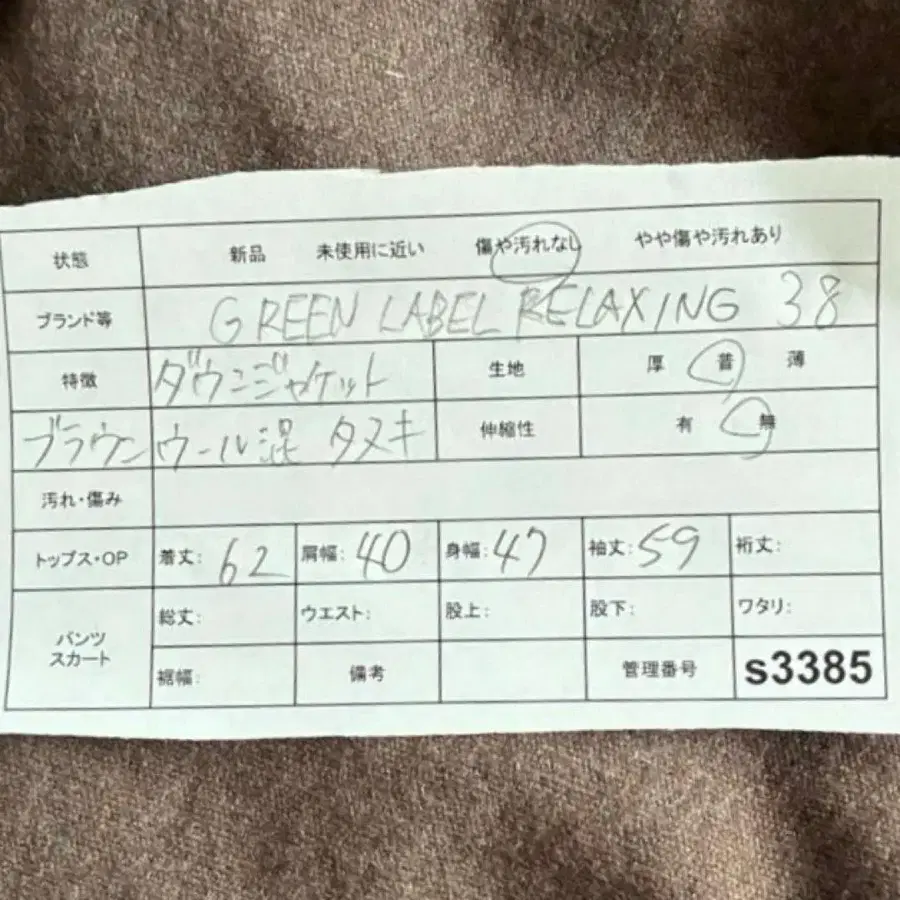 状態 新品 未使用に近い 傷や汚れなし やや傷や汚れあり
ブランド等 GREEN LABEL RELAXING 38
特徴 ダウンジャケット 生地 厚 普 薄
ブラウン ウール混 タヌキ 伸縮性 有 無
汚れ・傷み
トップス・OP 着丈: 62 肩幅: 40 身幅: 47 袖丈: 59 裄丈:
パンツ
スカート
総丈: ウエスト: 股上: 股下: ワタリ:
裾幅: 備考 管理番号 s3385